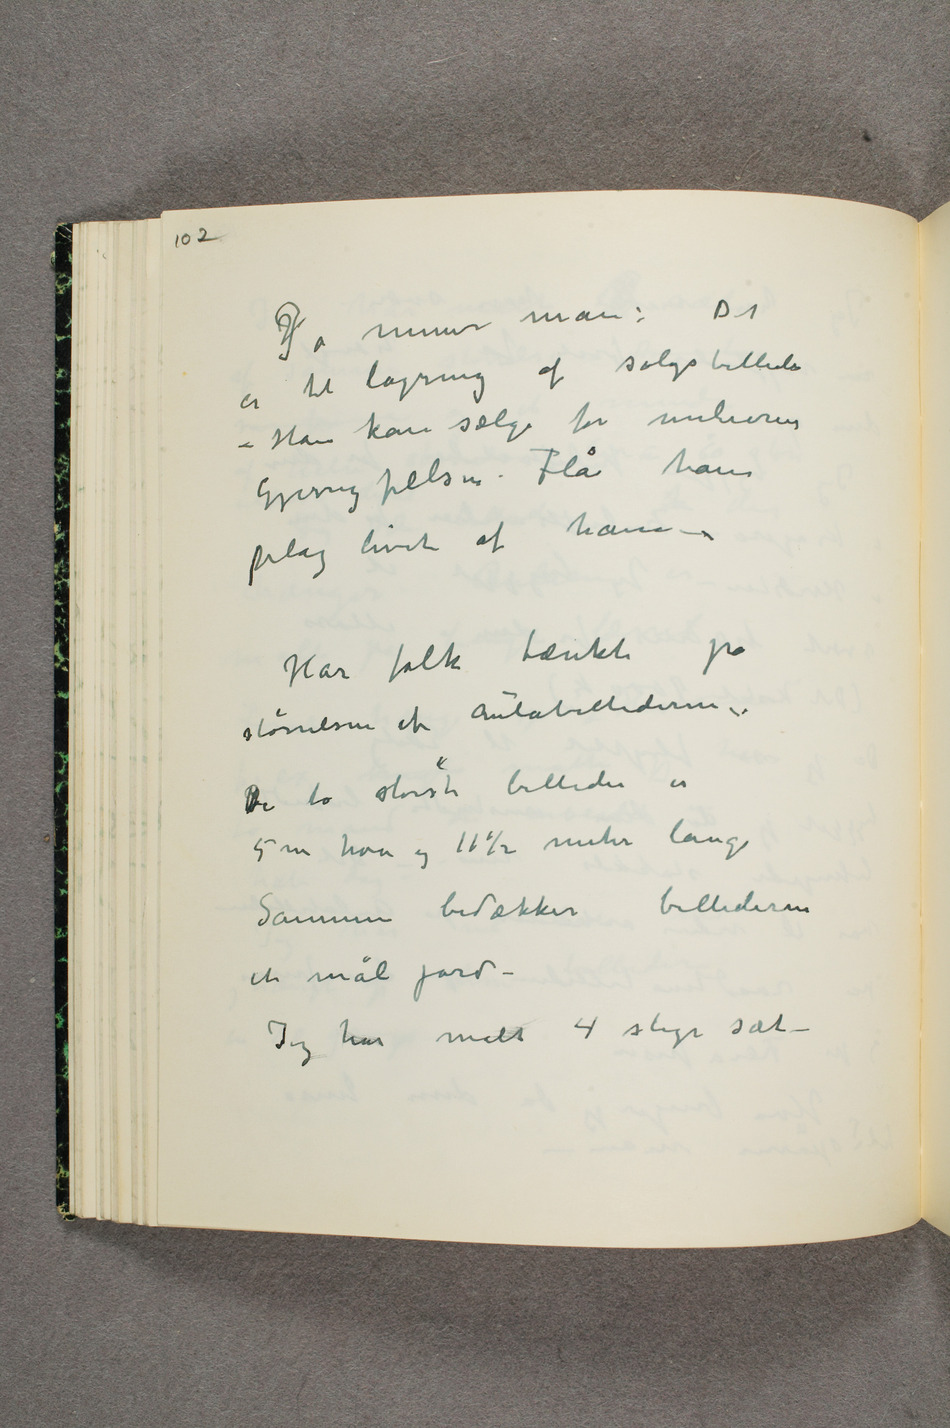 102
Ja mener man: Det
er til lagring af salgsbilleder
– Han kan sælge for millioner
Gjerrig pelsen. Flå ham
plag livet af ham –
Har folk tænkt på
størrelsen af Aulabillederne.
De to største billeder er
5 m høie og 11 1/2 meter lange
Sammen bedækker billederne
et mål jord –
Jeg har malt 4 slige sæt –